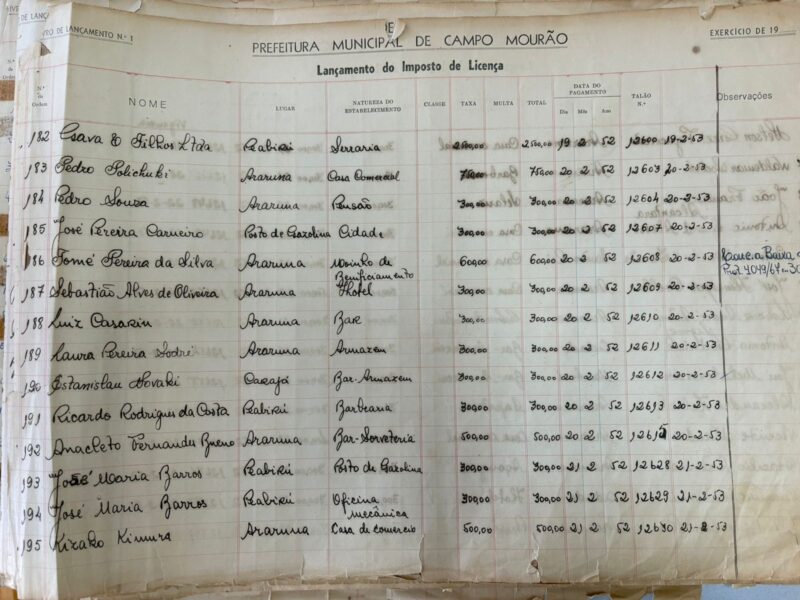 RO DE LANÇAMENTO N.º 1
PREFEITURA MUNICIPAL DE CAMPO MOURÃO
EXERCÍCIO DE 19
Lançamento do Imposto de Licença
N.º de Ordem NOME LUGAR NATUREZA DO ESTABELECIMENTO CLASSE TAXA MULTA TOTAL DATA DO PAGAMENTO Dia Mês Ano TALÃO N.º Observações
182 & Filhos Ltda Peabirú Serraria 2500,00 2500,00 19 2 52 12600 19-2-53
183 Pedro Polichuki Araruna Casa Comercial 750,00 750,00 20 2 52 12603 20-2-53
184 Pedro Souza Araruna Pensão 300,00 300,00 20 2 52 12604 20-2-53
185 José Pereira Carneiro Posto de Gazolina Cidade 300,00 300,00 20 2 52 12607 20-2-53
186 Tomé Pereira da Silva Araruna Moinho de Beneficiamento 600,00 600,00 20 2 52 12608 20-2-53 Baixa
187 Sebastião Alves de Oliveira Araruna Hotel 300,00 300,00 20 2 52 12609 20-2-53
188 Luiz Casarin Araruna Bar 300,00 300,00 20 2 52 12610 20-2-53
189 Laura Pereira Sodré Araruna Armazem 300,00 300,00 20 2 52 12611 20-2-53
190 Estanislau Novaki Carajá Bar-Armazem 300,00 300,00 20 2 52 12612 20-2-53
191 Ricardo Rodrigues da Costa Peabirú Barbearia 300,00 300,00 20 2 52 12613 20-2-53
192 Anacleto Fernandes Bueno Araruna Bar-Sorveteria 500,00 500,00 20 2 52 12615 20-2-53
193 José Maria Barros Peabirú Posto de Gazolina 300,00 300,00 21 2 52 12628 21-2-53
194 José Maria Barros Peabirú Oficina mecânica 300,00 300,00 21 2 52 12629 21-2-53
195 Kizako Kimura Araruna Casa de Comercio 500,00 500,00 21 2 52 12630 21-2-53